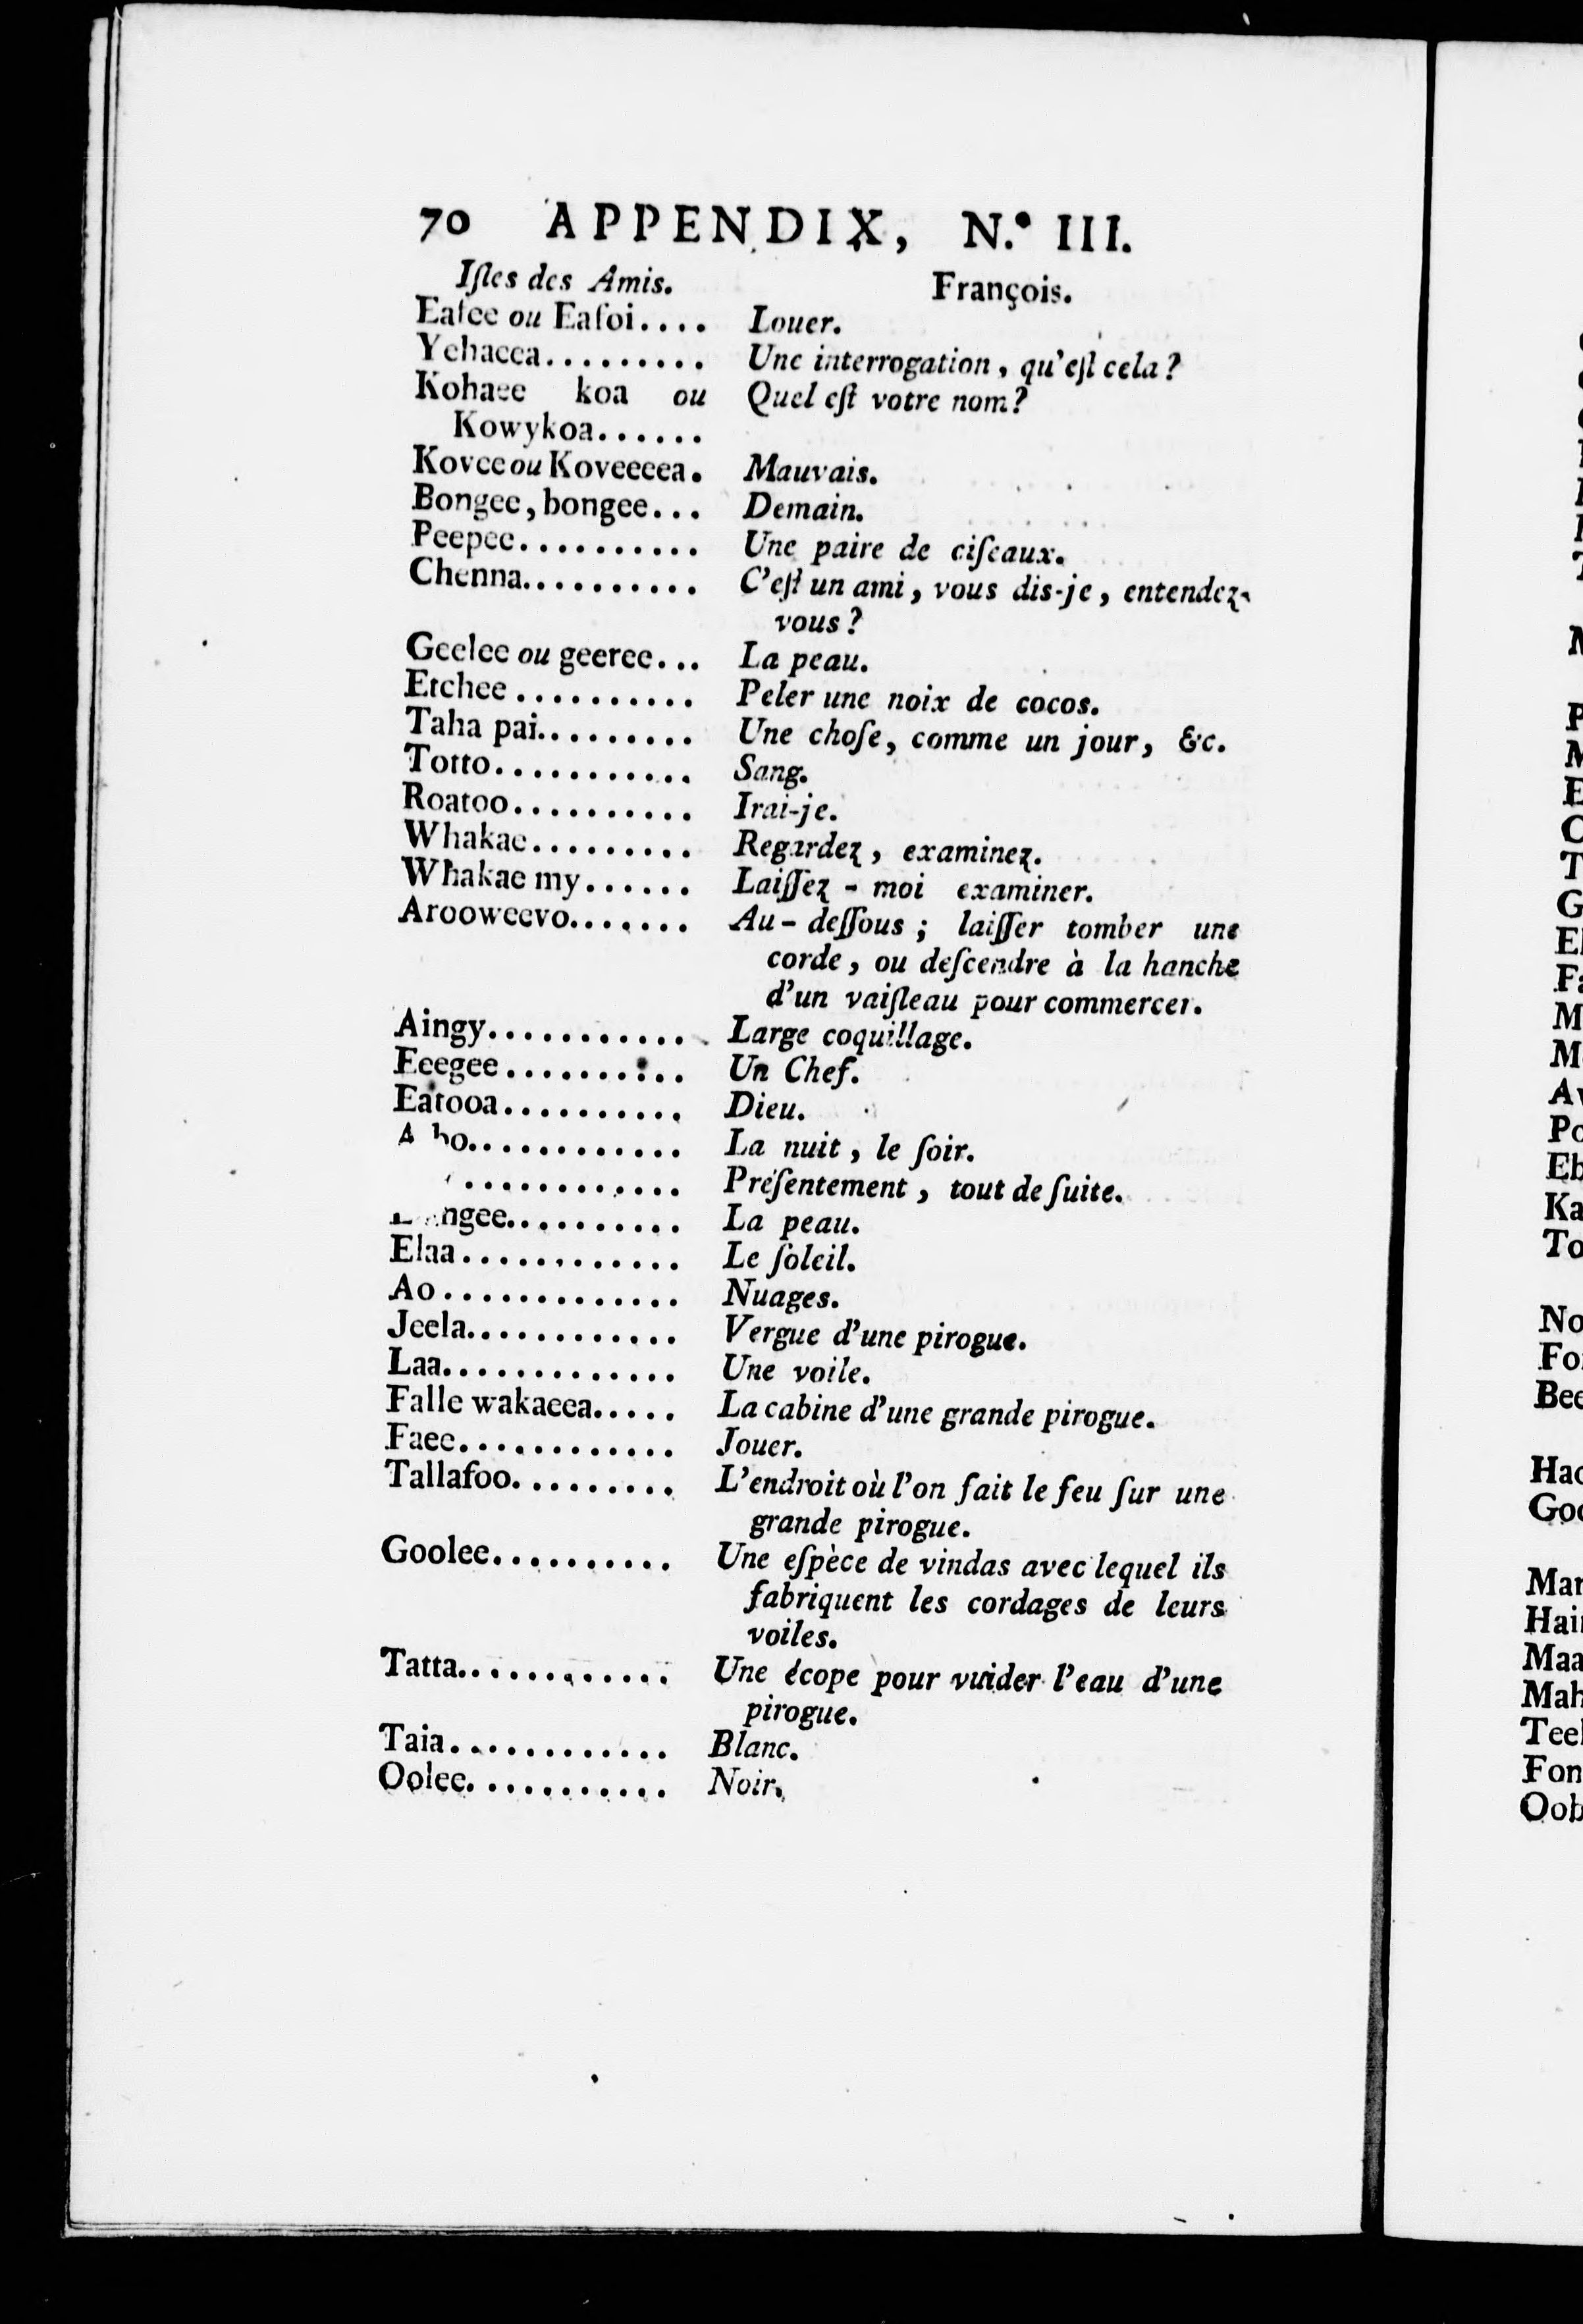 70 APPENDIX, N.° III.
Iſles des Amis. François.
Eafee ou Eafoi.... Louer.
Yehacea......... Une interrogation, qu'eſt cela?
Kohaee koa ou Quel eſt votre nom?
Kowykoa......
Kovee ou Koveeeea. Mauvais.
Bongee, bongee... Demain.
Peepee.......... Une paire de ciſeaux.
Chenna.......... C'eſt un ami, vous dis-je, entendez-
vous?
Geelee ou geeree... La peau.
Etchee.......... Peler une noix de cocos.
Taha pai......... Une choſe, comme un jour, &c.
Totto........... Sang.
Roatoo.......... Irai-je.
Whakae......... Regardez, examinez.
Whakae my...... Laiſſez-moi examiner.
Arooweevo....... Au-deſſous; laiſſer tomber une
corde, ou deſcendre à la hanche
d'un vaiſſeau pour commercer.
Aingy............ Large coquillage.
Eeegee.......... Un Chef.
Eatooa.......... Dieu.
............ La nuit, le ſoir.
............ Préſentement, tout de ſuite.
.......... La peau.
Elaa............ Le ſoleil.
Ao............. Nuages.
Jeela............ Vergue d'une pirogue.
Laa............. Une voile.
Falle wakaeea..... La cabine d'une grande pirogue.
Faee............ Jouer.
Tallafoo......... L'endroit où l'on fait le feu ſur une
grande pirogue.
Goolee.......... Une eſpèce de vindas avec lequel ils
fabriquent les cordages de leurs
voiles.
Tatta............ Une écope pour vuider l'eau d'une
pirogue.
Taia............ Blanc.
Oolee........... Noir.